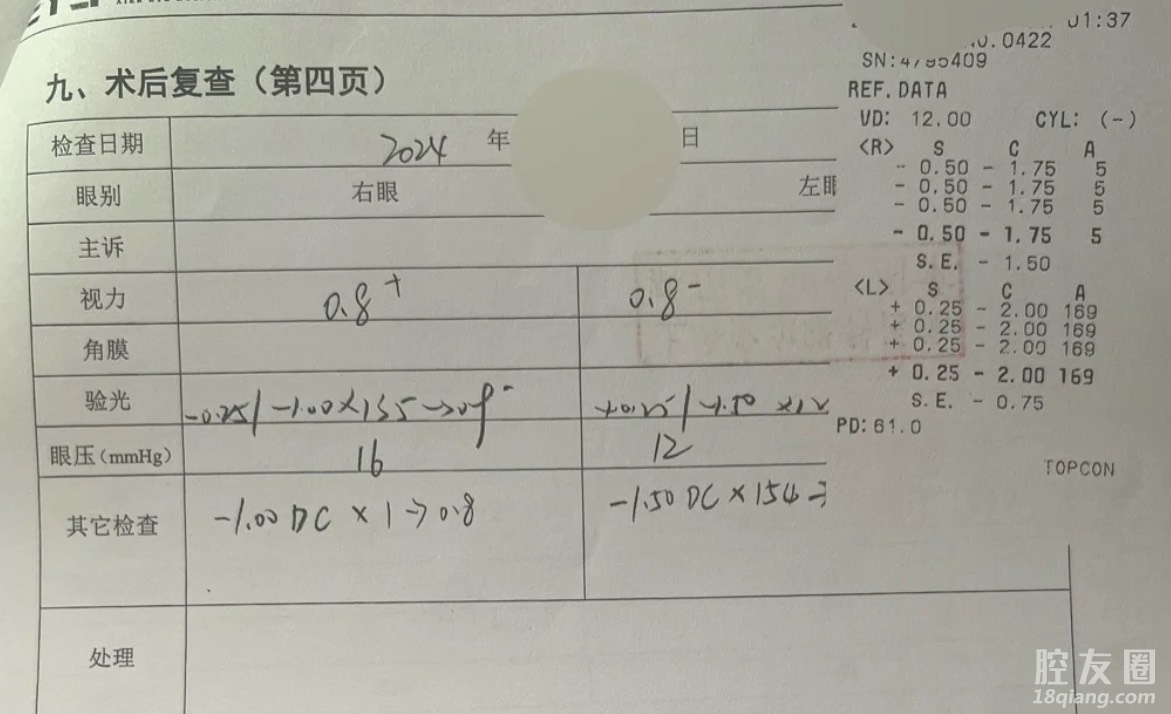 01:37
.0422
SN:4795409
REF.DATA
VD: 12.00 CYL: (-)
<R> S C A
- 0.50 - 1.75 5
- 0.50 - 1.75 5
- 0.50 - 1.75 5
- 0.50 - 1.75 5
S.E. - 1.50
<L> S C A
+ 0.25 - 2.00 169
+ 0.25 - 2.00 169
+ 0.25 - 2.00 169
+ 0.25 - 2.00 169
S.E. - 0.75
PD:61.0
TOPCON
九、术后复查（第四页）
检查日期 2024 年 日
眼别 右眼 左眼
主诉
视力 0.8+ 0.8-
角膜
验光 -0.25/-1.00×155→0.9- +0.25/-1.50
眼压(mmHg) 16 12
其它检查 -1.00DC×1→0.8 -1.50DC×154
处理
腔友圈
18qiang.com